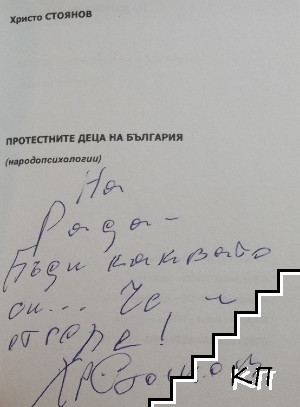 Христо СТОЯНОВ
ПРОТЕСТНИТЕ ДЕЦА НА БЪЛГАРИЯ
(народопсихологии)
На
Рада –
Бъди каквато
си... Че и
отгоре!
Хр. Стоянов
КП